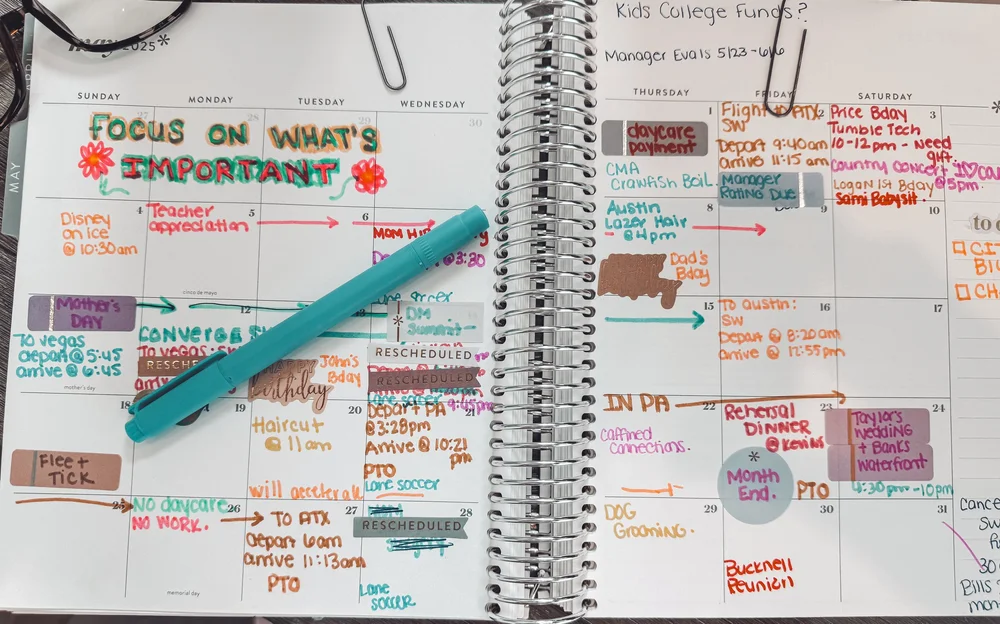 may 2025*
SUNDAY
MONDAY
TUESDAY
WEDNESDAY
APRIL
MAY
27
28
29
30
FOCUS ON WHAT'S
IMPORTANT
4
Disney
on ice
@ 10:30am
5
Teacher
appreciation
cinco de mayo
6
Mother's
DAY
To vegas
depart @ 5:45
arrive @ 6:45
mother's day
12
CONVERGE
To vegas: SW
DM
Summit
*
RESCHEDULED
RESCHEDULED
birthday
John's
Bday
18
Flea +
TICK
19
20
Haircut
@ 11am
will accelerate
21
Lane soccer
9:45pm
Depart PA
@ 3:28pm
Arrive @ 10:21
pm
PTO
Lane soccer
25
26
No daycare
NO WORK.
memorial day
27
TO ATX
Depart 6am
arrive 11:13am
PTO
28
RESCHEDULED
Lane
soccer
Kids College Funds?
Manager Evals 5/23-6/6
THURSDAY
FRIDAY
SATURDAY
1
daycare
payment
CMA
Crawfish Boil
2
Flight → ATX
SW
Depart 9:40am
arrive 11:15 am
Manager
Rating Due
3
Price Bday
Tumble Tech
10-12pm - Need
gift.
Country concert
@ 5pm.
Logan 1st Bday
Saini Babysit.
8
Austin
Lazer Hair
@ 4pm
Dad's
Bday
9
10
15
16
To austin:
SW
Depart @ 8:20am
arrive @ 12:55pm
17
22
IN PA
caffined
connections.
23
Rehersal
DINNER
@ Kevins
*
Month
End.
PTO
24
Taylor's
wedding
+ Banks
Waterfront
4:30pm-10pm
29
DOG
Grooming.
30
Bucknell
Reunion
31
to d
Bills